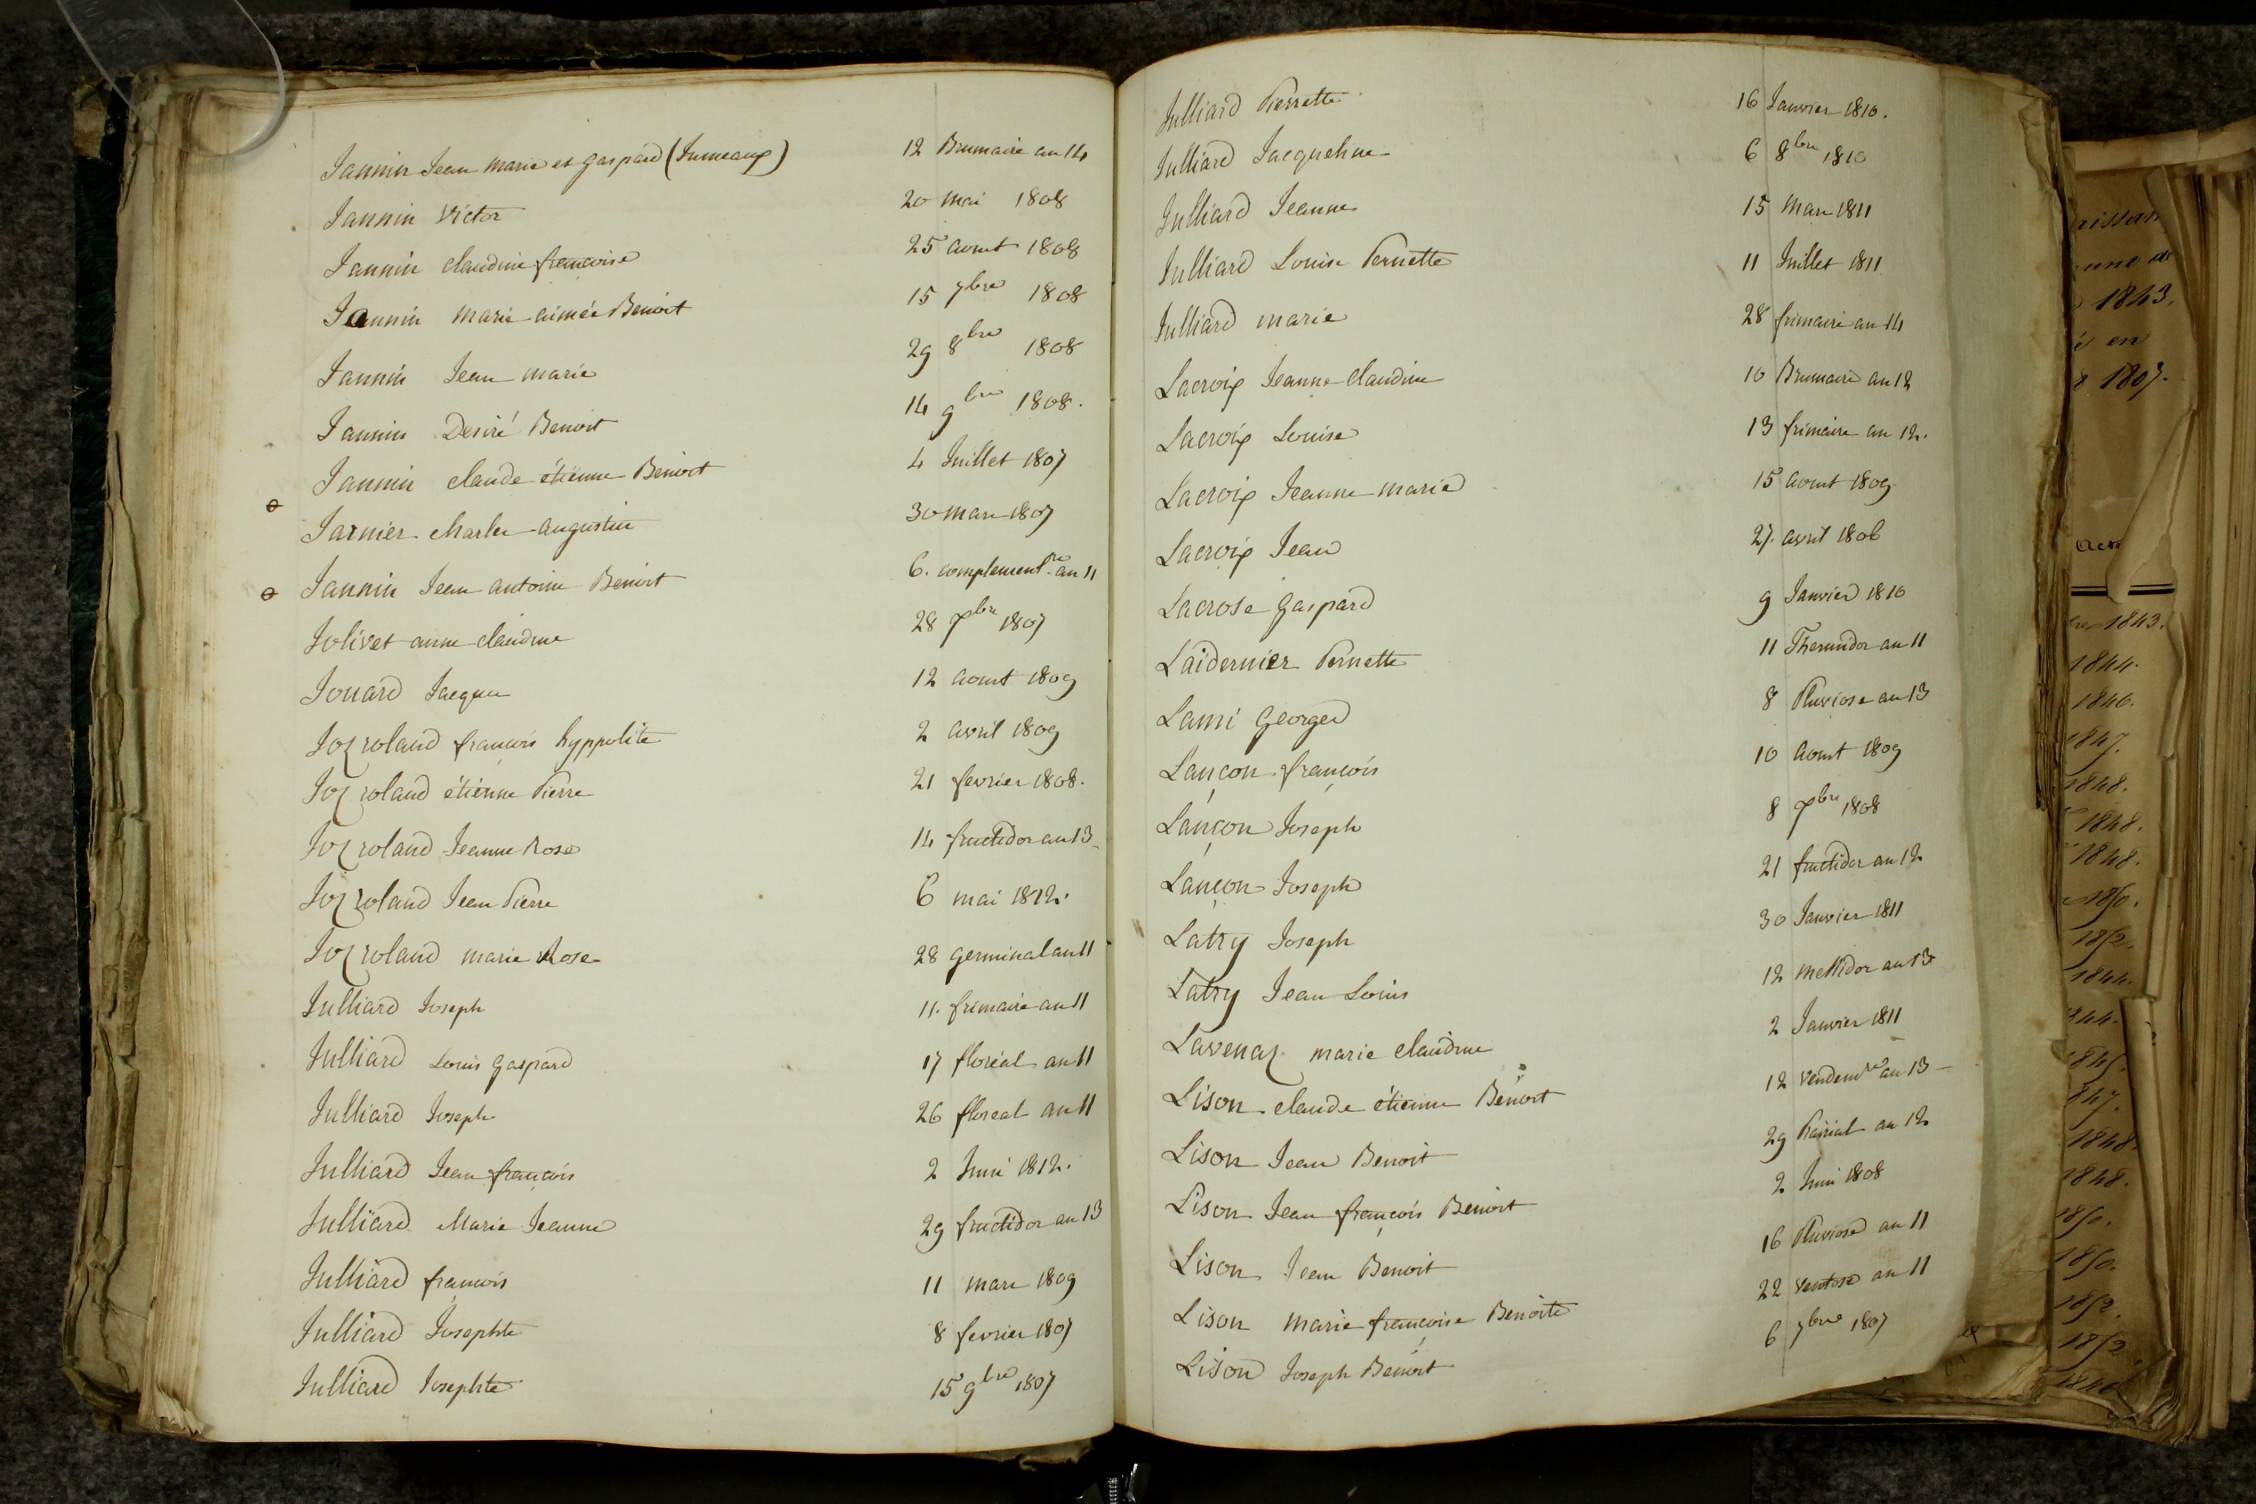 Jannin Jean Marie et Gaspard (Jumeaux) 12 Brumaire an 14
Jannin Victor 20 mai 1808
Jannin claudine francoise 25 aout 1808
Jannin marie aimée Benoit 15 7bre 1808
Jannin Jean marie 29 8bre 1808
Jannin Desiré Benoit 14 9bre 1808.
Jannin claude étienne Benoit 4 Juillet 1807
Jarnier charles augustin 30 mars 1807
Jannin Jean antoine Benoit 6. complement.re an 11
Jolivet anne claudine 28 Xbre 1807
Jouard Jacques 12 aout 1809
Joz roland françois hyppolite 2 avril 1809
Joz roland étienne Pierre 21 fevrier 1808.
Joz roland Jeanne Rose 14 fructidor an 13
Joz roland Jean Pierre 6 mai 1812.
Joz roland marie Rose 28 germinal an 11
Julliard Joseph 11. frimaire an 11
Julliard Louis Gaspard 17 floréal an 11
Julliard Joseph 26 floreal an 11
Julliard Jean françois 2 Juin 1812.
Julliard Marie Jeanne 29 fructidor an 13
Julliard françois 11 mars 1809
Julliard Josephte 8 fevrier 1807
Julliard Josephte 15 9bre 1807
Julliard Pierrette 16 Janvier 1810.
Julliard Jacqueline 6 8bre 1810
Julliard Jeanne 15 mars 1811
Julliard Louise Pernette 11 Juillet 1811
Julliard marie 28 frimaire an 14
Lacroix Jeanne claudine 10 Brumaire an 12
Lacroix Louise 13 frimaire an 12.
Lacroix Jeanne marie 15 aout 1809.
Lacroix Jean 27. avril 1806
Lacrose Gaspard 9 Janvier 1810
Laidernier Pernette 11 Thermidor an 11
Lami George 8 Pluviose an 13
Lançon françois 10 aout 1809
Lançon Joseph 8 Xbre 1808
Lançon Joseph 21 fructidor an 12
Latry Joseph 30 Janvier 1811
Latry Jean Louis 12 messidor an 13
Lavenaz marie claudine 2 Janvier 1811
Lison claude étienne Benoit 12 vendem.re an 13
Lison Jean Benoit 29 Prairial an 12
Lison Jean françois Benoit 2 Juin 1808
Lison Jean Benoit 16 Pluviose an 11
Lison marie françoise Benoite 22 ventose an 11
Lison Joseph Benoit 6 7bre 1807
1843.
é en
1807.
1843.
1844.
1846.
1847.
1848.
1848.
1848.
1850.
1852.
1844.
1847.
1848
1848.
1850.
1850.
1852.
1852